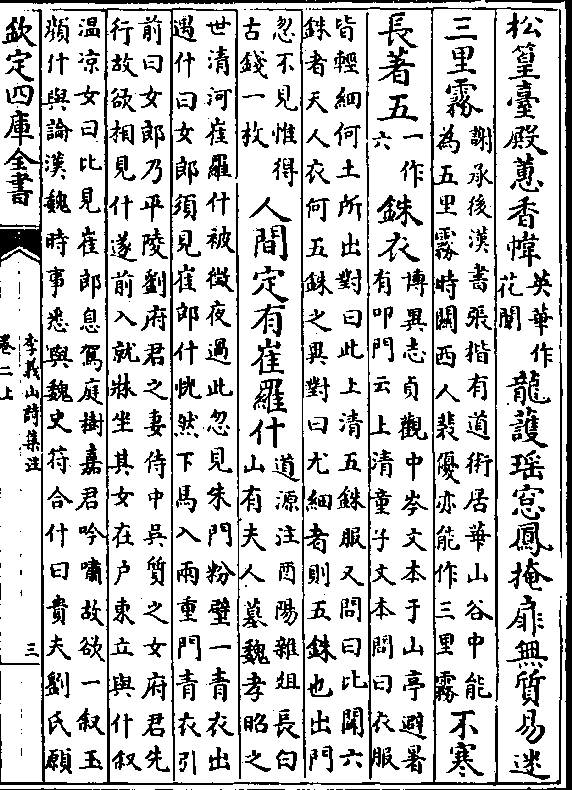 松篁臺殿蕙香幃英華作花闈龍護瑤窻鳳掩扉無質易迷
三里霧謝承後漢書張楷有道術居華山谷中能為五里霧時關西人裴優亦能作三里霧不寒
長著五一作六銖衣博異志貞觀中岑文本于山亭避暑有叩門云上清童子文本問曰衣服
皆輕細何土所出對曰此上清五銖服又問曰比聞六銖者天人衣何五銖之異對曰尤細者則五銖也出門
忽不見惟得古錢一枚人間定有崔羅什道源注酉陽雜俎長白山有夫人墓魏孝昭之
世清河崔羅什被徵夜過此忽見朱門粉壁一青衣出遇什曰女郎須見崔郎什怳然下馬入兩重門青衣引
前曰女郎乃平陵劉府君之妻侍中吳質之女府君先行故欲相見什遂前入就牀坐其女在户東立與什叙
温凉女曰比見崔郎息駕庭樹嘉君吟嘯故欲一叙玉顔什與論漢魏時事悉與魏史符合什曰貴夫劉氏願
欽定四庫全書
李義山詩集注
卷二上
三